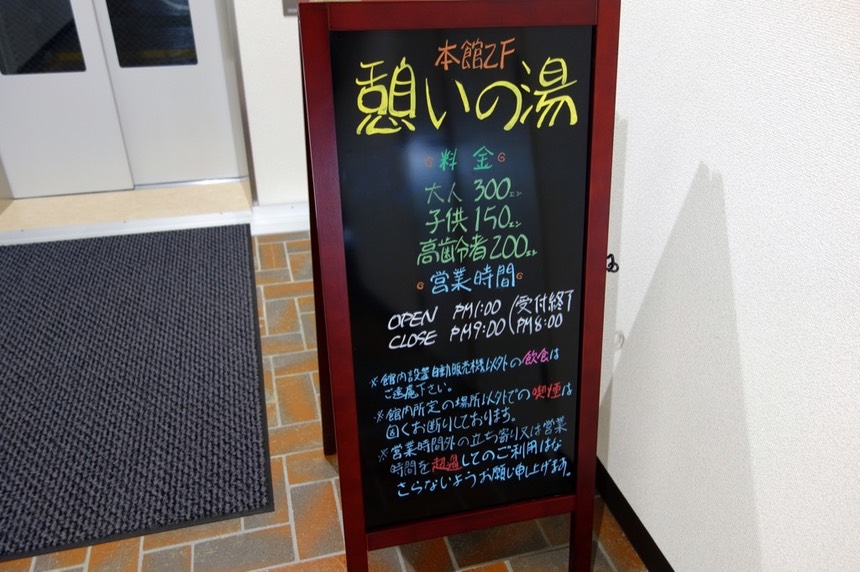 本館2F
憩いの湯
料金
大人 300エン
子供 150エン
高齢者 200エン
営業時間
OPEN PM1:00 (受付終了
CLOSE PM9:00 (PM8:00
※館内設置自動販売機以外の飲食は
ご遠慮下さい。
※館内所定の場所以外での喫煙は
固くお断りしております。
※営業時間外の立ち寄り又は営業
時間を超過してのご利用はな
さらないようお願い申し上げます。